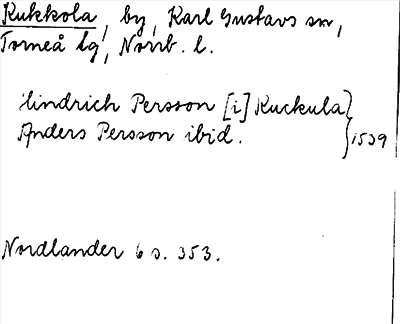 Kukkola, by, Karl Gustavs sn,
Torneå tg, Norrb. l.
Hindrich Persson [i] Kuckula
Anders Persson ibid. } 1539
Nordlander 6 s. 353.